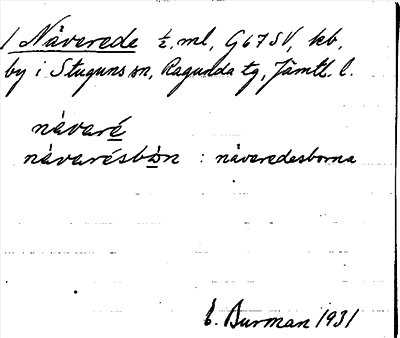 1 Näverede ½ ml, G67SV, kb,
by i Stuguns sn, Ragunda tg, Jämtl. l.
nàvaré
nàvarésbòn : näveredesborna
E. Burman 1931